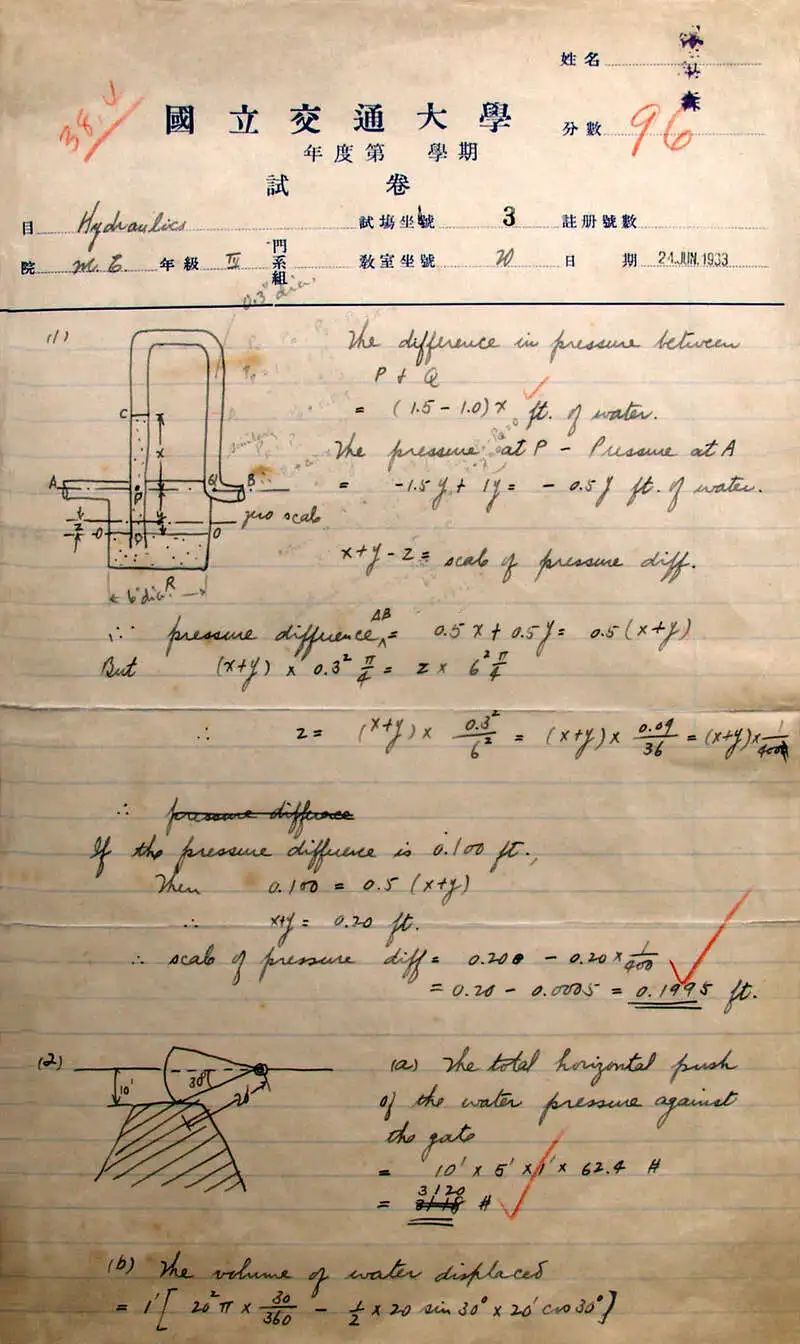 姓名
38.√
國立交通大學
分數 96
年度第 學期
試 卷
目 Hydraulics 試場坐號 3 註册號數
院 M.E. 年級 IV 門系組 教室坐號 20 日 期 24.JUN.1933
0.3" dia.
(1)
The difference in pressure between
P + Q
= (1.5 - 1.0) x ft. of water.
C
x
The pressure at P - Pressure at A
A P Q B
= -1.5y + 1y = - 0.5y ft. of water.
zero scale
z O D O
x+y-z = scale of pressure diff.
6" dia. R
∴ pressure difference AB = 0.5x + 0.5y = 0.5(x+y)
But (x+y) × 0.3² π/4 = z × 6² π/4
∴ z = (x+y) × 0.3²/6² = (x+y) × 0.09/36 = (x+y) × 1/400
∴ pressure difference
If the pressure difference is 0.100 ft.,
Then 0.100 = 0.5 (x+y)
∴ x+y = 0.20 ft.
∴ scale of pressure diff = 0.200 - 0.20 × 1/400
= 0.20 - 0.0005 = 0.1995 ft.
(2)
30° 10' 20'
(a) The total horizontal push
of the water pressure against
the gate
= 10' × 5' × 1' × 62.4 #
= 3120 #
(b) The volume of water displaced
= 1' [ 20² π × 30/360 - 1/2 × 20 sin 30° × 20' cos 30° ]